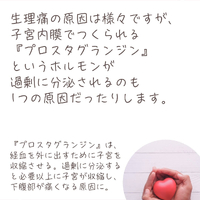 生理痛の原因は様々ですが、
子宮内膜でつくられる
『プロスタグランジン』
というホルモンが
過剰に分泌されるのも
1つの原因だったりします。
『プロスタグランジン』は、
経血を外に出すために子宮を
収縮させる。過剰に分泌する
と必要以上に子宮が収縮し、
下腹部が痛くなる原因に。